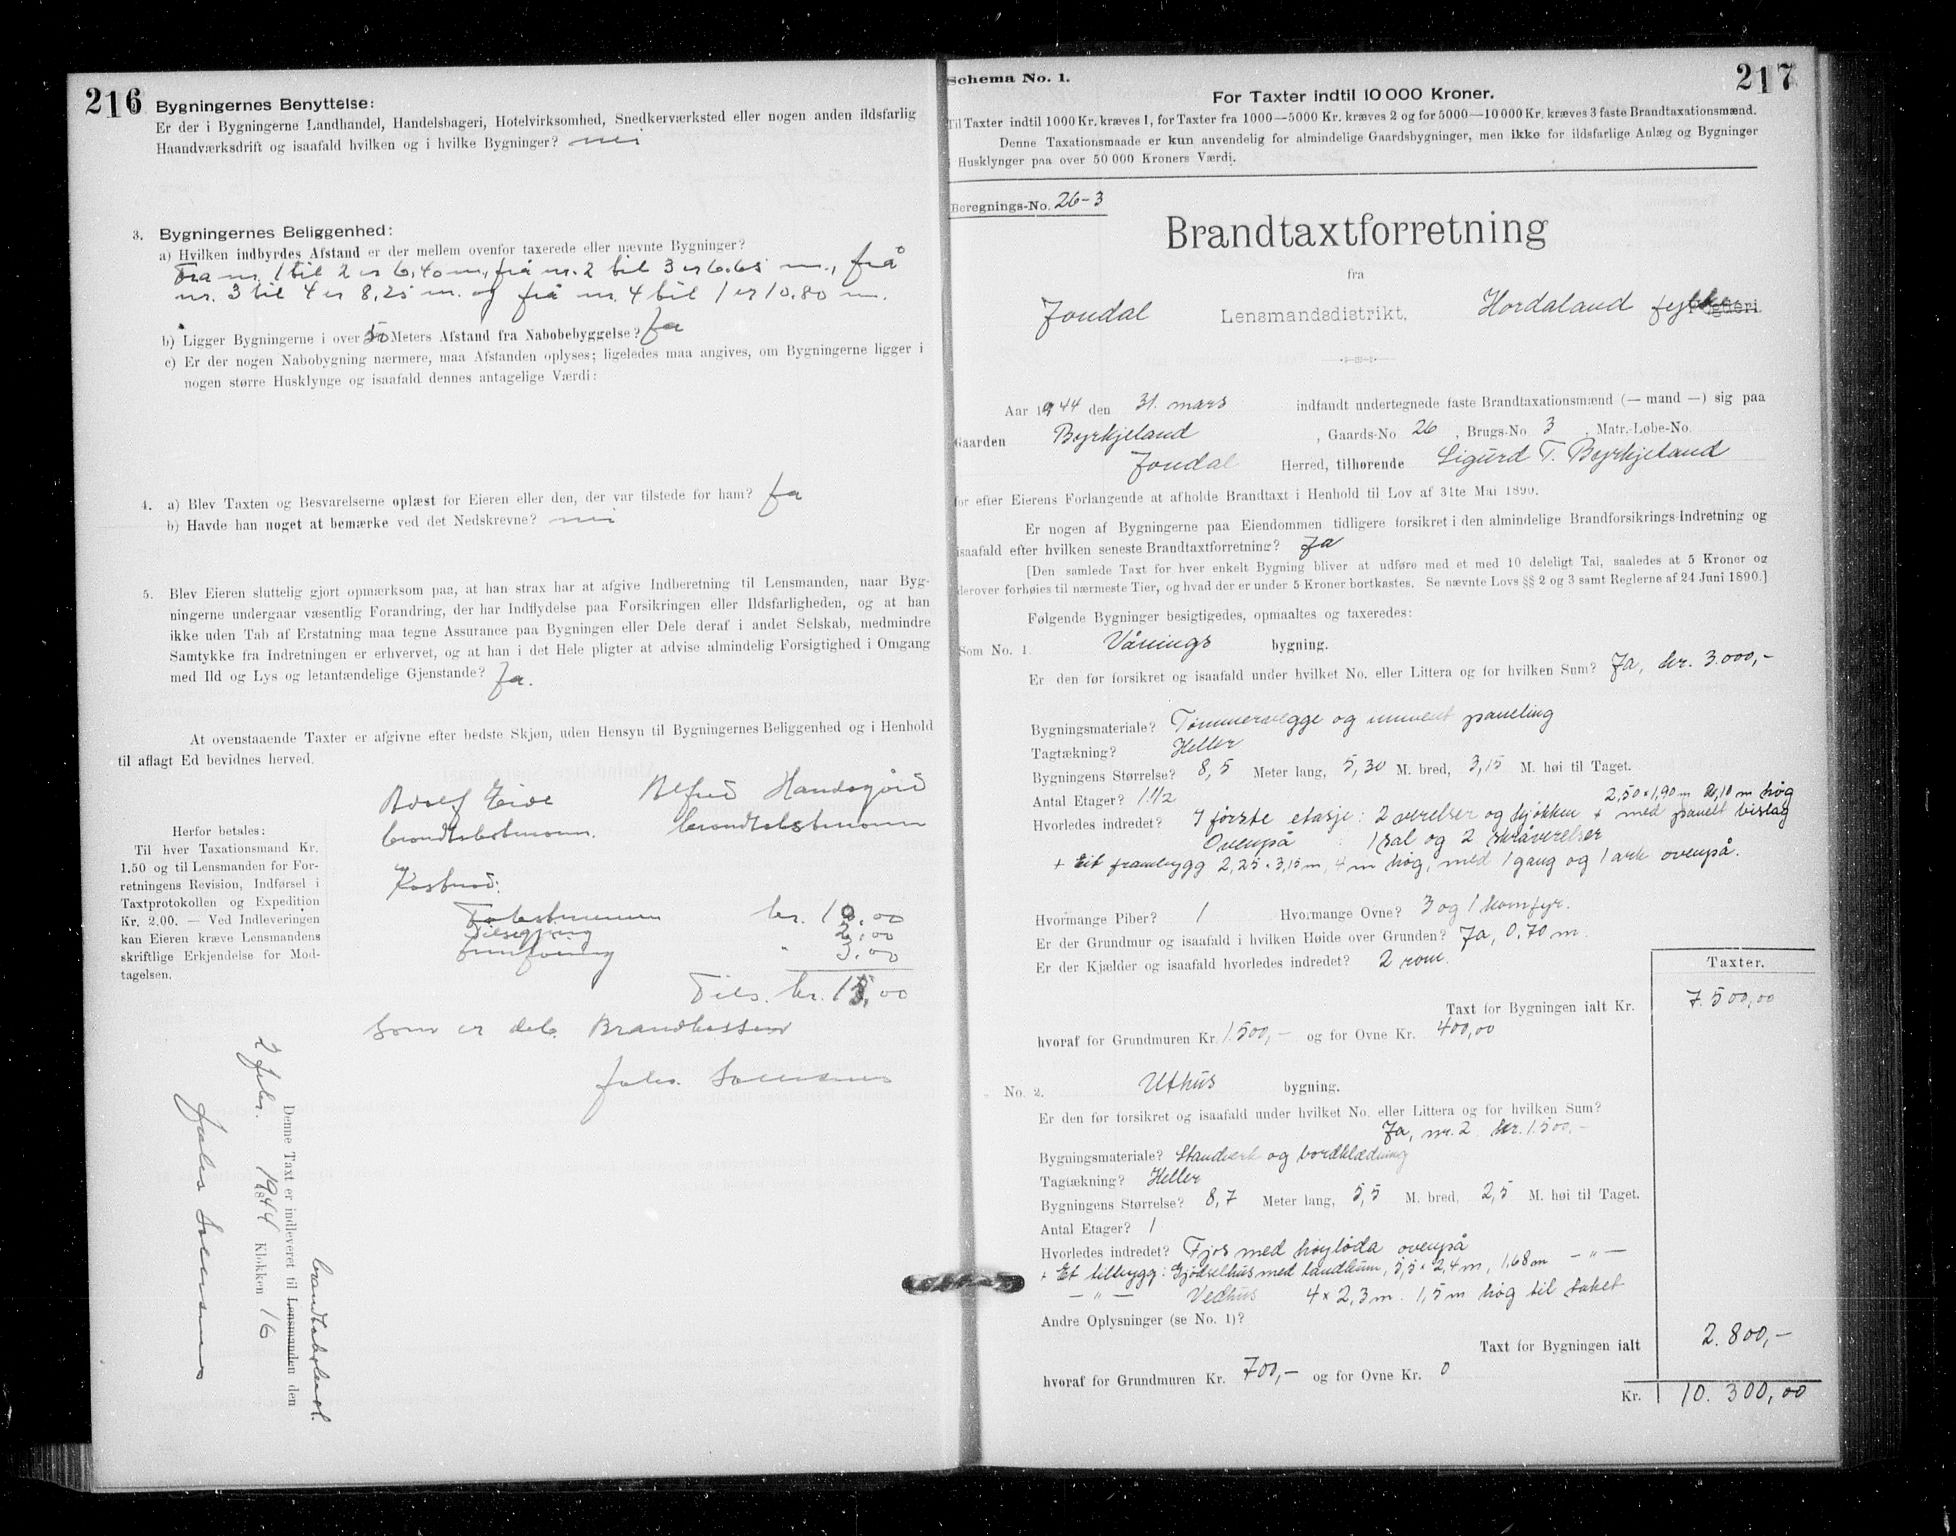 216
Bygningernes Benyttelse:
Er der i Bygningerne Landhandel, Handelsbageri, Hotelvirksomhed, Snedkerværksted eller nogen anden ildsfarlig
Haandværksdrift og isaafald hvilken og i hvilke Bygninger? nei
3. Bygningernes Beliggenhed:
a) Hvilken indbyrdes Afstand er der mellem ovenfor taxerede eller nævnte Bygninger?
Fra nr. 1 til 2 er 6,40 m., frå nr. 2 til 3 er 6.65 m., frå
nr. 3 til 4 er 8,25 m. og frå nr. 4 til 1 er 10.80 m.
b) Ligger Bygningerne i over 50 Meters Afstand fra Nabobebyggelse? Ja
c) Er der nogen Nabobygning nærmere, maa Afstanden oplyses; ligeledes maa angives, om Bygningerne ligger i
nogen større Husklynge og isaafald dennes antagelige Værdi:
4. a) Blev Taxten og Besvarelserne oplæst for Eieren eller den, der var tilstede for ham? Ja
b) Havde han noget at bemærke ved det Nedskrevne? nei
5. Blev Eieren sluttelig gjort opmærksom paa, at han strax har at afgive Indberetning til Lensmanden, naar Byg-
ningerne undergaar væsentlig Forandring, der har Indflydelse paa Forsikringen eller Ildsfarligheden, og at han
ikke uden Tab af Erstatning maa tegne Assurance paa Bygningen eller Dele deraf i andet Selskab, medmindre
Samtykke fra Indretningen er erhvervet, og at han i det Hele pligter at advise almindelig Forsigtighed i Omgang
med Ild og Lys og letantændelige Gjenstande? Ja.
At ovenstaaende Taxter er afgivne efter bedste Skjøn, uden Hensyn til Bygningernes Beliggenhed og i Henhold
til aflagt Ed bevidnes herved.
Adolf Eide Alfred Handegård
branntakstmann. branntakstmann
Herfor betales:
Til hver Taxationsmand Kr.
1.50 og til Lensmanden for For-
retningens Revision, Indførsel i
Taxtprotokollen og Expedition
Kr. 2.00. — Ved Indleveringen
kan Eieren kræve Lensmandens
skriftlige Erkjendelse for Mod-
tagelsen.
Kostnad:
Takstmennene kr. 10,00
Tilsegjing 2,00
Innføring " 3,00
Tils. kr. 15,00
som er det. Brandkassen
Denne Taxt er indleveret til Lensmanden den
1944 Klokken 16
217
Schema No. 1.
For Taxter indtil 10 000 Kroner.
Til Taxter indtil 1000 Kr. kræves 1, for Taxter fra 1000—5000 Kr. kræves 2 og for 5000—10 000 Kr. kræves 3 faste Brandtaxationsmænd.
Denne Taxationsmaade er kun anvendelig for almindelige Gaardsbygninger, men ikke for ildsfarlige Anlæg og Bygninger
i Husklynger paa over 50 000 Kroners Værdi.
Beregnings-No. 26-3
Brandtaxtforretning
fra
Jondal Lensmandsdistrikt, Hordaland fylke Fogderi.
Aar 1944 den 31. mars indfandt undertegnede faste Brandtaxationsmænd (— mand —) sig paa
Gaarden Byrkjeland, Gaards-No 26, Brugs-No. 3, Matr.-Løbe-No.
Jondal Herred, tilhørende Sigurd T. Byrkjeland
for efter Eierens Forlangende at afholde Brandtaxt i Henhold til Lov af 31te Mai 1890.
Er nogen af Bygningerne paa Eiendommen tidligere forsikret i den almindelige Brandforsikrings-Indretning og
isaafald efter hvilken seneste Brandtaxtforretning? Ja
[Den samlede Taxt for hver enkelt Bygning bliver at udføre med et med 10 deleligt Tal, saaledes at 5 Kroner og
derover forhøies til nærmeste Tier, og hvad der er under 5 Kroner bortkastes. Se nævnte Lovs §§ 2 og 3 samt Reglerne af 24 Juni 1890.]
Følgende Bygninger besigtigedes, opmaaltes og taxeredes:
Som No. 1. Vånings bygning.
Er den før forsikret og isaafald under hvilket No. eller Littera og for hvilken Sum? Ja, kr. 3.000,-
Bygningsmateriale? Tømmervegge og utvent paneling
Tagtækning? Heller
Bygningens Størrelse? 8,5 Meter lang, 5,30 M. bred, 3,15 M. høi til Taget.
Antal Etager? 1 1/2
2,50 x 1,90 m 2,10 m høg
Hvorledes indredet? I første etasje: 2 verelser og kjøkken + med panelt bislag
Ovenpå : 1 sal og 2 skråverelser
+ Eit frambygg 2,25 x 3,15 m, 4 m høg, med 1 gang og 1 ark ovenpå.
Hvormange Piber? 1 Hvormange Ovne? 3 og 1 komfyr.
Er der Grundmur og isaafald i hvilken Høide over Grunden? Ja, 0.70 m.
Er der Kjælder og isaafald hvorledes indredet? 2 rom.
Taxter.
Taxt for Bygningen ialt Kr. 7.500,00
hvoraf for Grundmuren Kr. 1.500,- og for Ovne Kr. 400,00
No. 2. Uthus bygning.
Er den før forsikret og isaafald under hvilket No. eller Littera og for hvilken Sum?
Ja, nr. 2 kr. 1.500.-
Bygningsmateriale? Standverk og bordklædning
Tagtækning? Heller
Bygningens Størrelse? 8,7 Meter lang, 5,5 M. bred, 2,5 M. høi til Taget.
Antal Etager? 1
Hvorledes indredet? Fjos med høyløda ovenpå
+ Et tilbygg: Gjødselhus med landkum, 5,5 x 2,4 m, 1,68 m — " —
— " — Vedhus 4 x 2,3 m. 1,5 m høg til taket
Andre Oplysninger (se No. 1)?
Taxt for Bygningen ialt 2.800,-
hvoraf for Grundmuren Kr. 700,- og for Ovne Kr. 0
Kr. 10.300,00